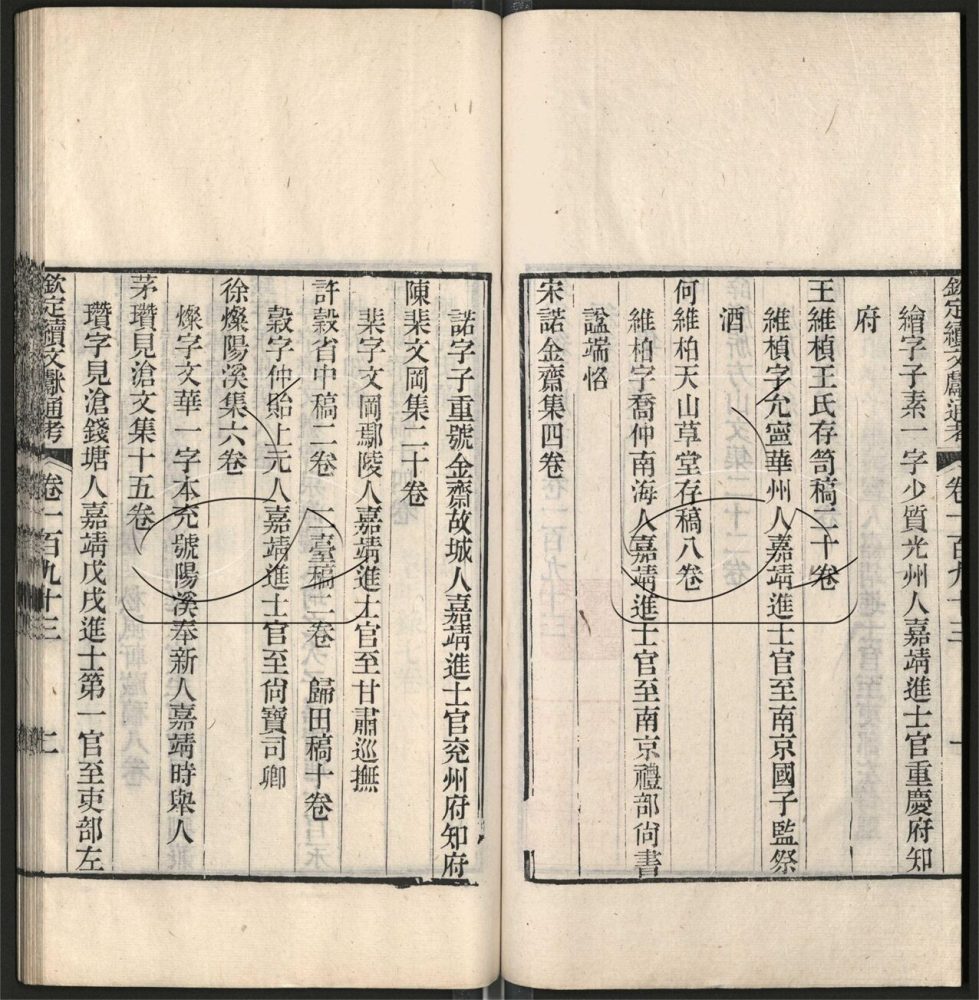 欽定續文獻通考 卷一百九十三 一
繪字子素一字少質光州人嘉靖進士官重慶府知
府
王維楨王氏存笥稿二十卷
維楨字允寧華州人嘉靖進士官至南京國子監祭
酒
何維柏天山草堂存稿八卷
維柏字喬仲南海人嘉靖進士官至南京禮部尙書
諡端恪
宋諾金齋集四卷
諾字子重號金齋故城人嘉靖進士官兖州府知府
陳棐文岡集二十卷
棐字文岡鄢陵人嘉靖進士官至甘肅巡撫
許穀省中稿二卷 二臺稿二卷 歸田稿十卷
穀字仲貽上元人嘉靖進士官至尙寶司卿
徐燦陽溪集六卷
燦字文華一字本充號陽溪奉新人嘉靖時舉人
茅瓚見滄文集十五卷
瓚字見滄錢塘人嘉靖戊戌進士第一官至吏部左
欽定續文獻通考 卷一百九十三 二